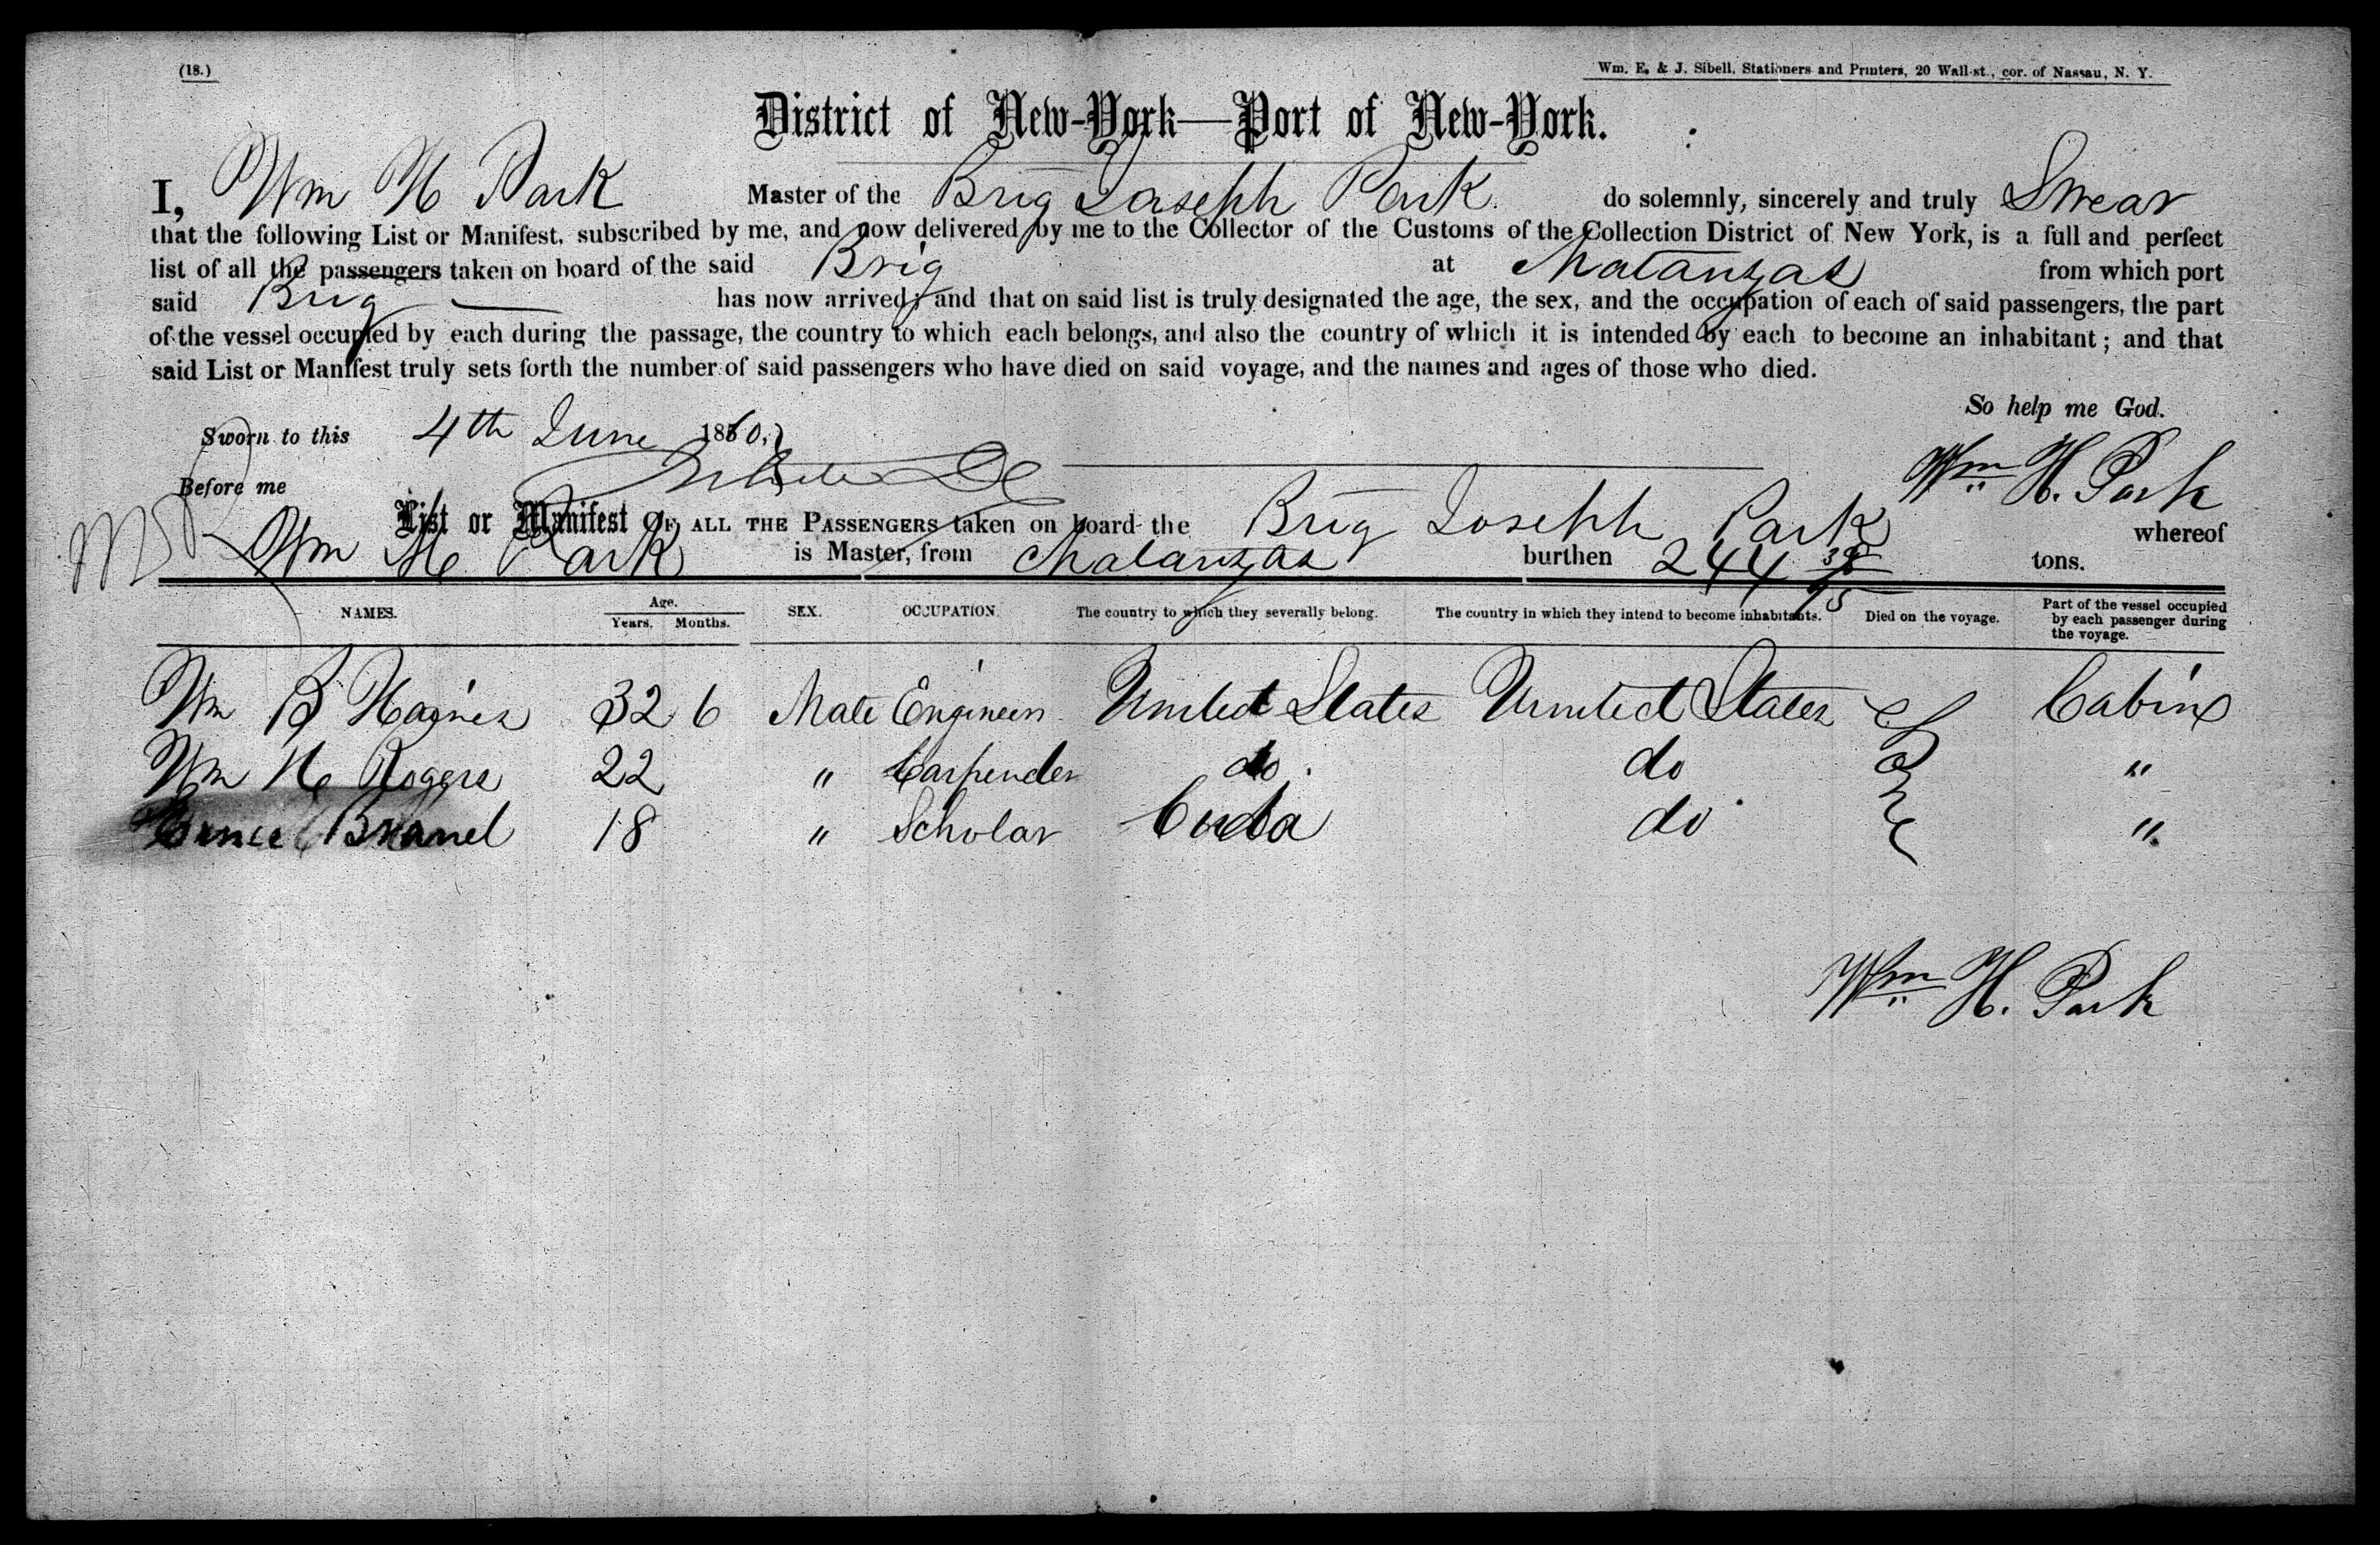 (18.)
Wm. E. & J. Sibell, Stationers and Printers, 20 Wall-st., cor. of Nassau, N. Y.
District of New-York—Port of New-York.
I, Wm H Park Master of the Brig Joseph Park do solemnly, sincerely and truly Swear
that the following List or Manifest, subscribed by me, and now delivered by me to the Collector of the Customs of the Collection District of New York, is a full and perfect
list of all the passengers taken on board of the said Brig at Matanzas from which port
said Brig has now arrived; and that on said list is truly designated the age, the sex, and the occupation of each of said passengers, the part
of the vessel occupied by each during the passage, the country to which each belongs, and also the country of which it is intended by each to become an inhabitant; and that
said List or Manifest truly sets forth the number of said passengers who have died on said voyage, and the names and ages of those who died.
So help me God.
Sworn to this 4th June 1860,
Wm H. Park
Before me
List or Manifest OF ALL THE PASSENGERS taken on board the Brig Joseph Park whereof
Wm H Park is Master, from Matanzas burthen 244 38/95 tons.
NAMES. Age. Years. Months. SEX. OCCUPATION. The country to which they severally belong. The country in which they intend to become inhabitants. Died on the voyage. Part of the vessel occupied by each passenger during the voyage.
Wm B Haines 32 6 Male Engineer United States United States Cabin
Wm H Rogers 22 " Carpender do do "
18 " Scholar Cuba do "
Wm H. Park